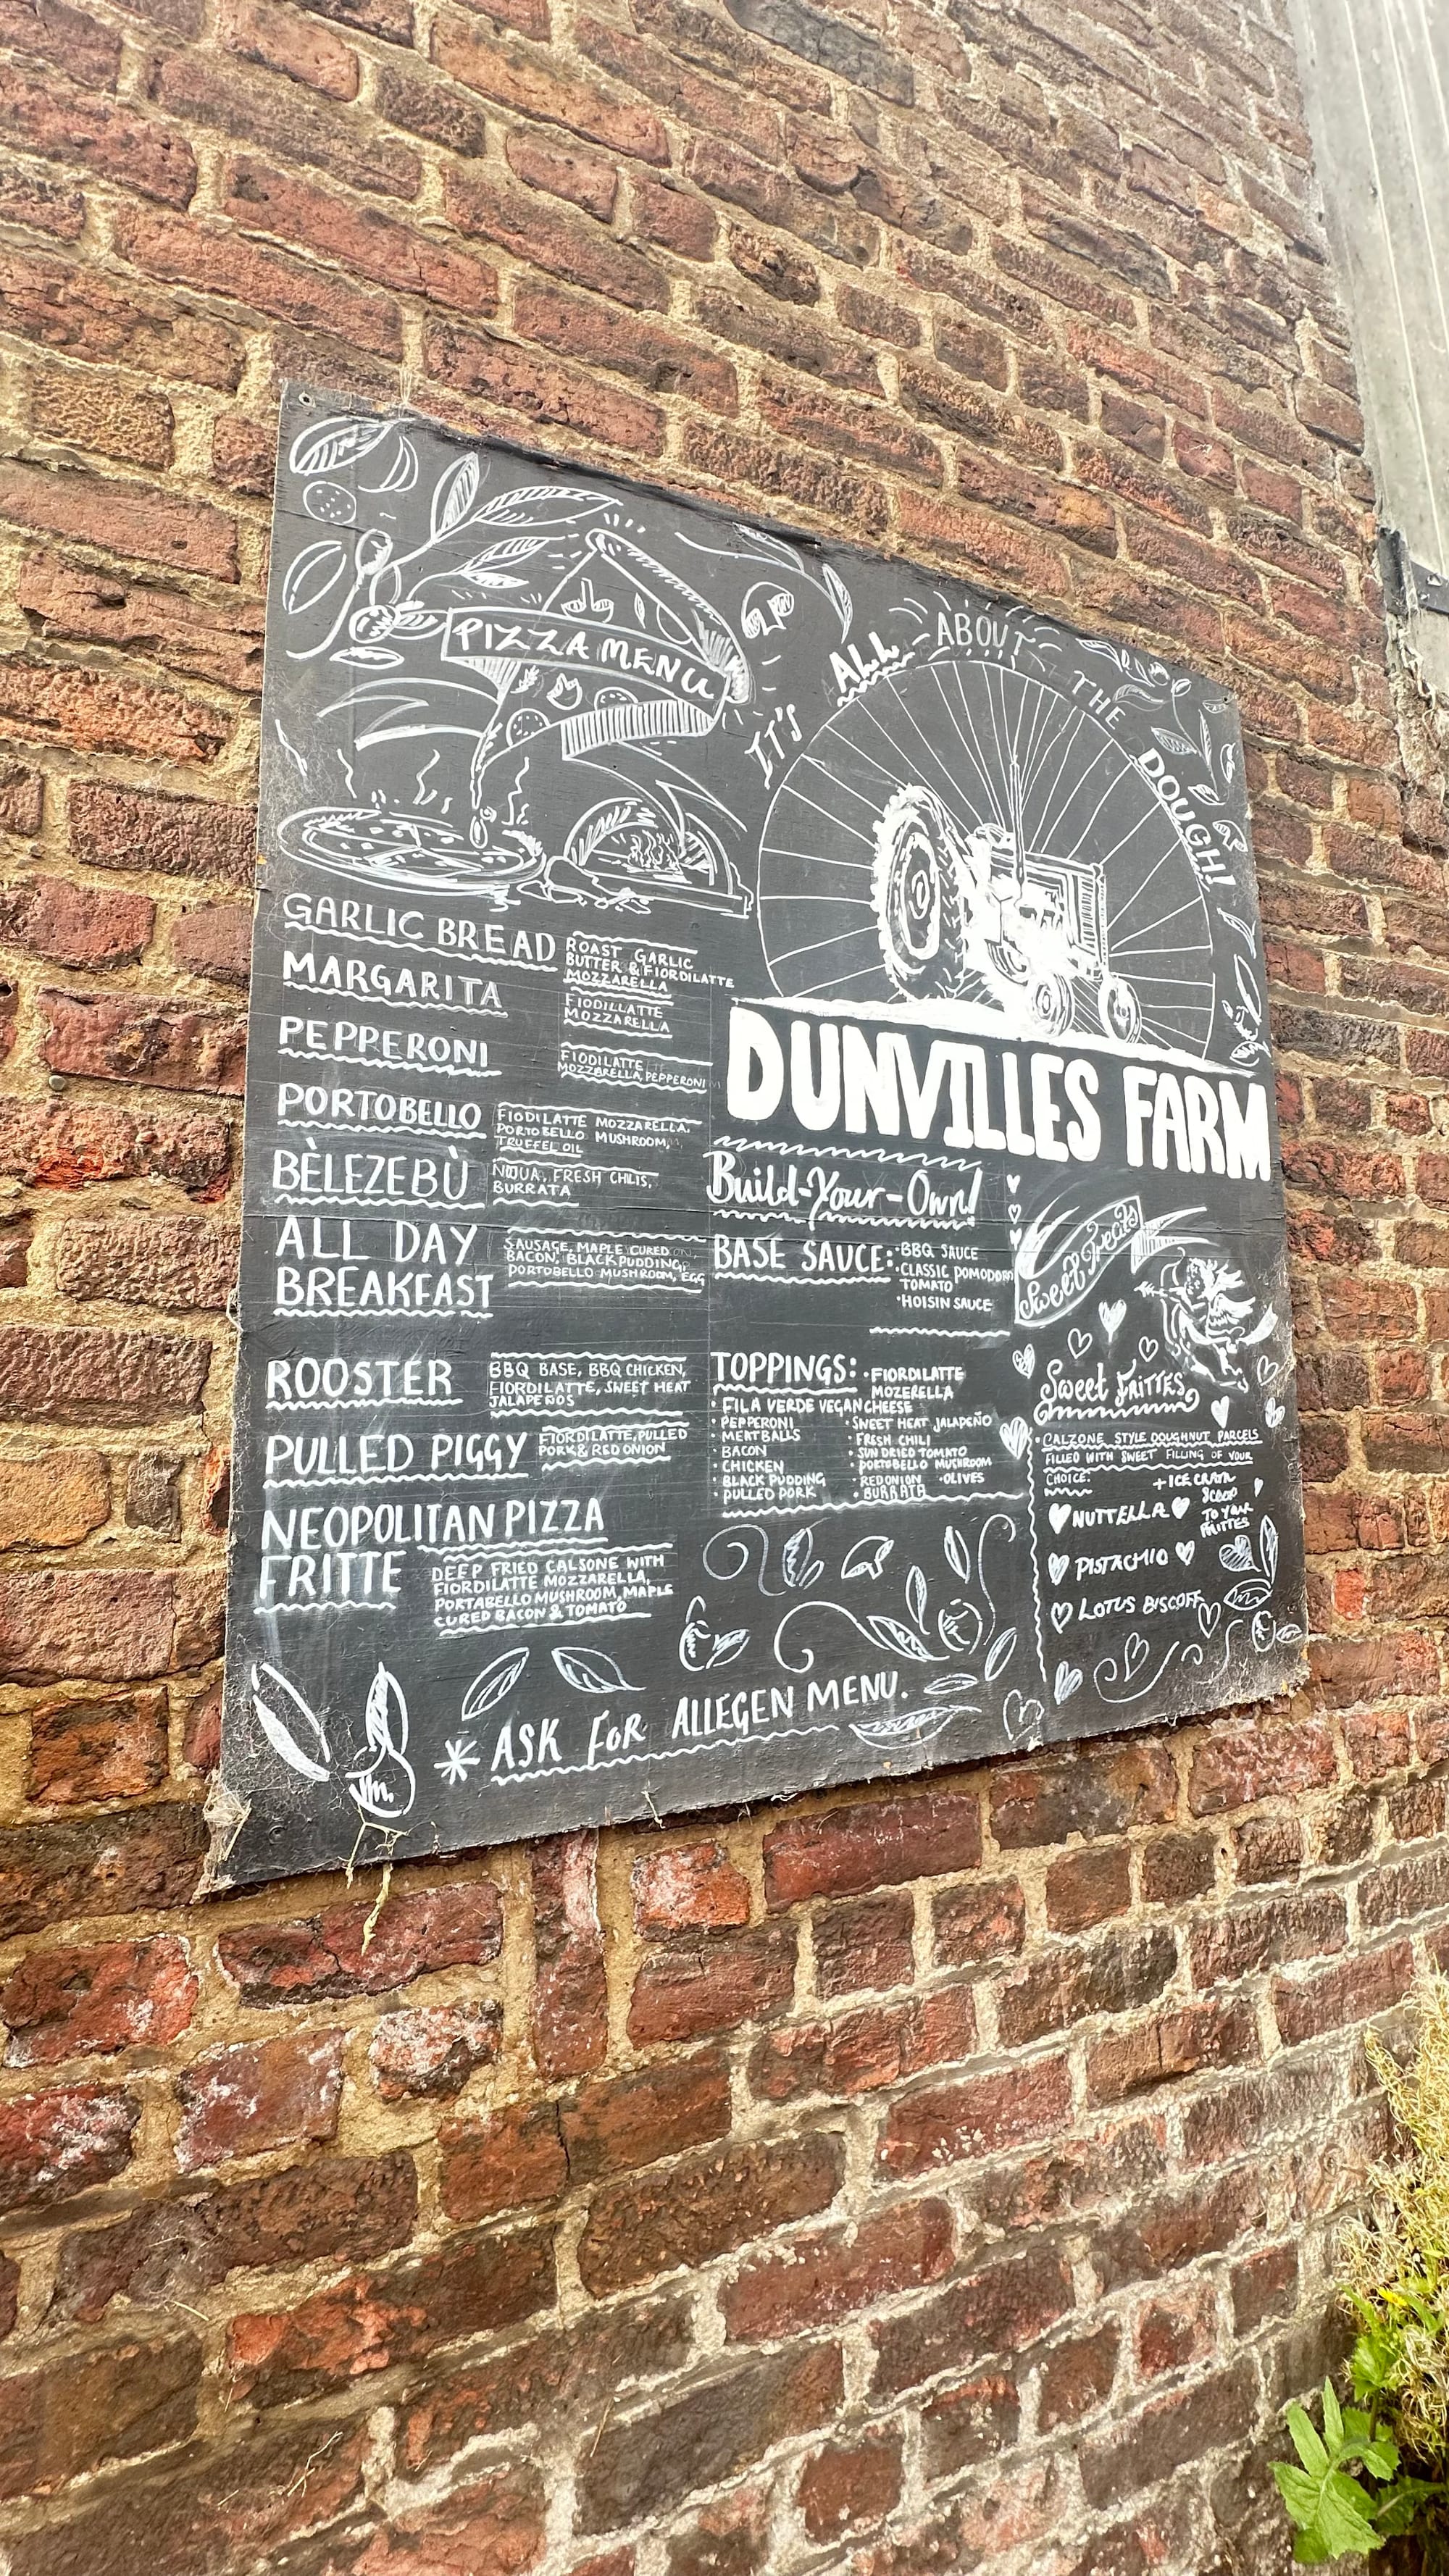 PIZZA MENU
IT'S ALL ABOUT THE DOUGH!
DUNVILLES FARM
GARLIC BREAD
ROAST GARLIC
BUTTER & FIORDILATTE
MOZZARELLA
MARGARITA
FIODILLATTE
MOZZARELLA
PEPPERONI
FIODILATTE
MOZZARELLA, PEPPERONI
PORTOBELLO
FIODILATTE MOZZARELLA,
PORTOBELLO MUSHROOM,
TRUFFEL OIL
BÈLEZEBÙ
NDUA, FRESH CHILIS,
BURRATA
ALL DAY
BREAKFAST
SAUSAGE, MAPLE CURED
BACON, BLACK PUDDING,
PORTOBELLO MUSHROOM, EGG
ROOSTER
BBQ BASE, BBQ CHICKEN,
FIORDILATTE, SWEET HEAT
JALAPEÑOS
PULLED PIGGY
FIORDILATTE, PULLED
PORK & RED ONION
NEOPOLITAN PIZZA
FRITTE
DEEP FRIED CALSONE WITH
FIORDILATTE MOZZARELLA,
PORTABELLO MUSHROOM, MAPLE
CURED BACON & TOMATO
Build-Your-Own!
BASE SAUCE:
• BBQ SAUCE
• CLASSIC POMODORO
TOMATO
• HOISIN SAUCE
TOPPINGS:
• FIORDILATTE
MOZERELLA
• FILA VERDE VEGAN CHEESE
• PEPPERONI
• MEATBALLS
• BACON
• CHICKEN
• BLACK PUDDING
• PULLED PORK
• SWEET HEAT JALAPEÑO
• FRESH CHILI
• SUN DRIED TOMATO
• PORTOBELLO MUSHROOM
• RED ONION • OLIVES
• BURRATA
Sweet Treats
Sweet FRITTES
• CALZONE STYLE DOUGHNUT PARCELS
FILLED WITH SWEET FILLING OF YOUR
CHOICE:
+ ICE CREAM
SCOOP
TO YOUR
FRITTES
NUTTELLA
PISTACHIO
LOTUS BISCOFF
* ASK FOR ALLEGEN MENU.